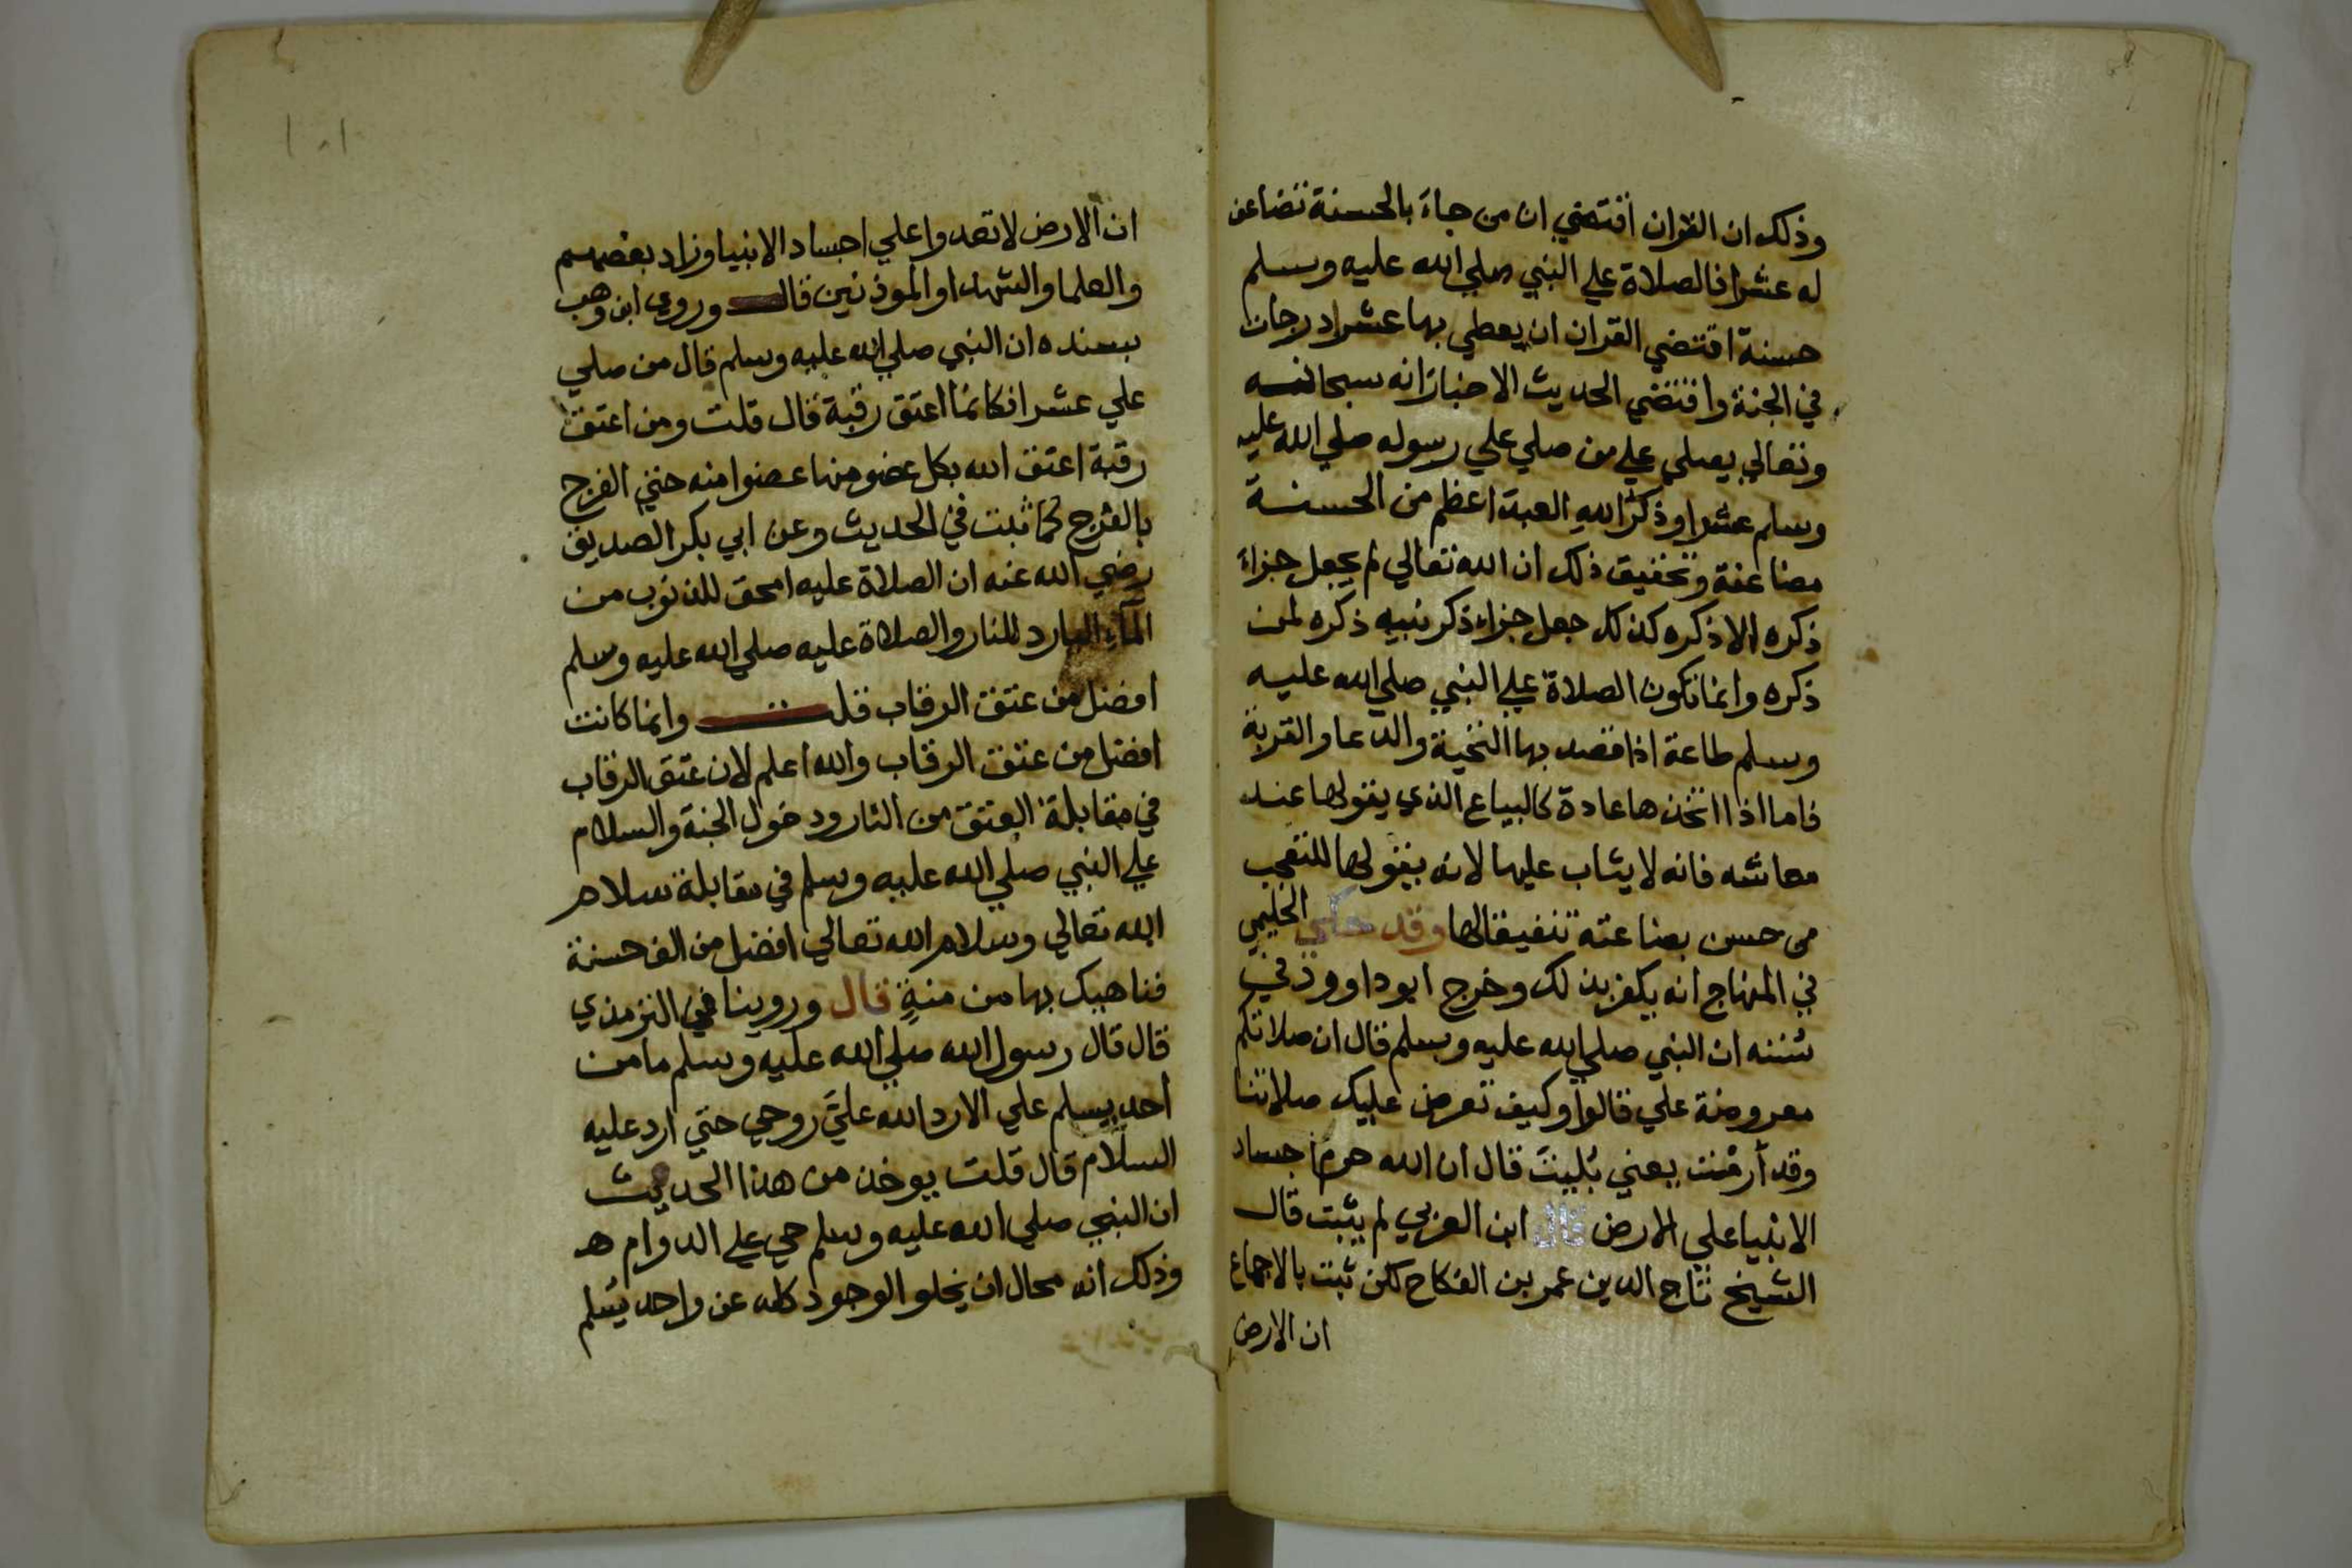 وذلك ان القران اقتضي ان من جاء بالحسنة تضاعف
له عشرا فالصلاة علي النبي صلي الله عليه وسلم
حسنة اقتضي القران ان يعطي بها عشرا درجات
في الجنة واقتضي الحديث الاخبار انه سبحانه
وتعالي يصلي علي من صلي علي رسوله صلي الله عليه
وسلم عشرا وذكر الله العبد اعظم من الحسنة
مضاعفة وتحقيق ذلك ان الله تعالي لم يجعل جزاء
ذكره الا ذكره كذلك جعل جزاء ذكر نبيه ذكره لمن
ذكره وانما تكون الصلاة علي النبي صلي الله عليه
وسلم طاعة اذا قصد بها التحية والدعا والقربة
فاما اذا اتخذها عادة كالبياع الذي يقولها عند
معاشه فانه لا يثاب عليها لانه يقولها للتعجب
من حسن بضاعته تنفيقا لها وقد حكي الحليمي
في المنهاج انه يكفر بذلك وخرج ابو داوود في
سننه ان النبي صلي الله عليه وسلم قال ان صلاتكم
معروضة علي قالوا وكيف تعرض عليك صلاتنا
وقد أرمت يعني بُليت قال ان الله حرم اجساد
الانبيا علي الارض قال ابن العربي لم يثبت قال
الشيخ تاج الدين عمر بن الفكاح لكن ثبت بالاجماع
ان الارض
١٠١
ان الارض لا تعدوا علي اجساد الانبيا وزاد بعضهم
والعلما والشهدا والموذنين قال وروي ابن وهب
بسنده ان النبي صلي الله عليه وسلم قال من صلي
علي عشرا فكانما اعتق رقبة قال قلت ومن اعتق
رقبة اعتق الله بكل عضو منها عضوا منه حتي الفرج
بالفرج كما ثبت في الحديث وعن ابي بكر الصديق
رضي الله عنه ان الصلاة عليه امحق للذنوب من
المآء البارد للنار والصلاة عليه صلي الله عليه وسلم
افضل من عتق الرقاب قلت وانما كانت
افضل من عتق الرقاب والله اعلم لان عتق الرقاب
في مقابلة العتق من النار ودخول الجنة والسلام
علي النبي صلي الله عليه وسلم في مقابلة سلام
الله تعالي وسلام الله تعالي افضل من الف حسنة
فناهيك بها من منةٍ قال وروينا في الترمذي
قال قال رسول الله صلي الله عليه وسلم ما من
احد يسلم علي الا رد الله عليَّ روحي حتي ارد عليه
السلام قال قلت يوخذ من هذا الحديث
ان النبي صلي الله عليه وسلم حي علي الدوام هـ
وذلك انه محال ان يخلو الوجود كله عن واحد يسلم